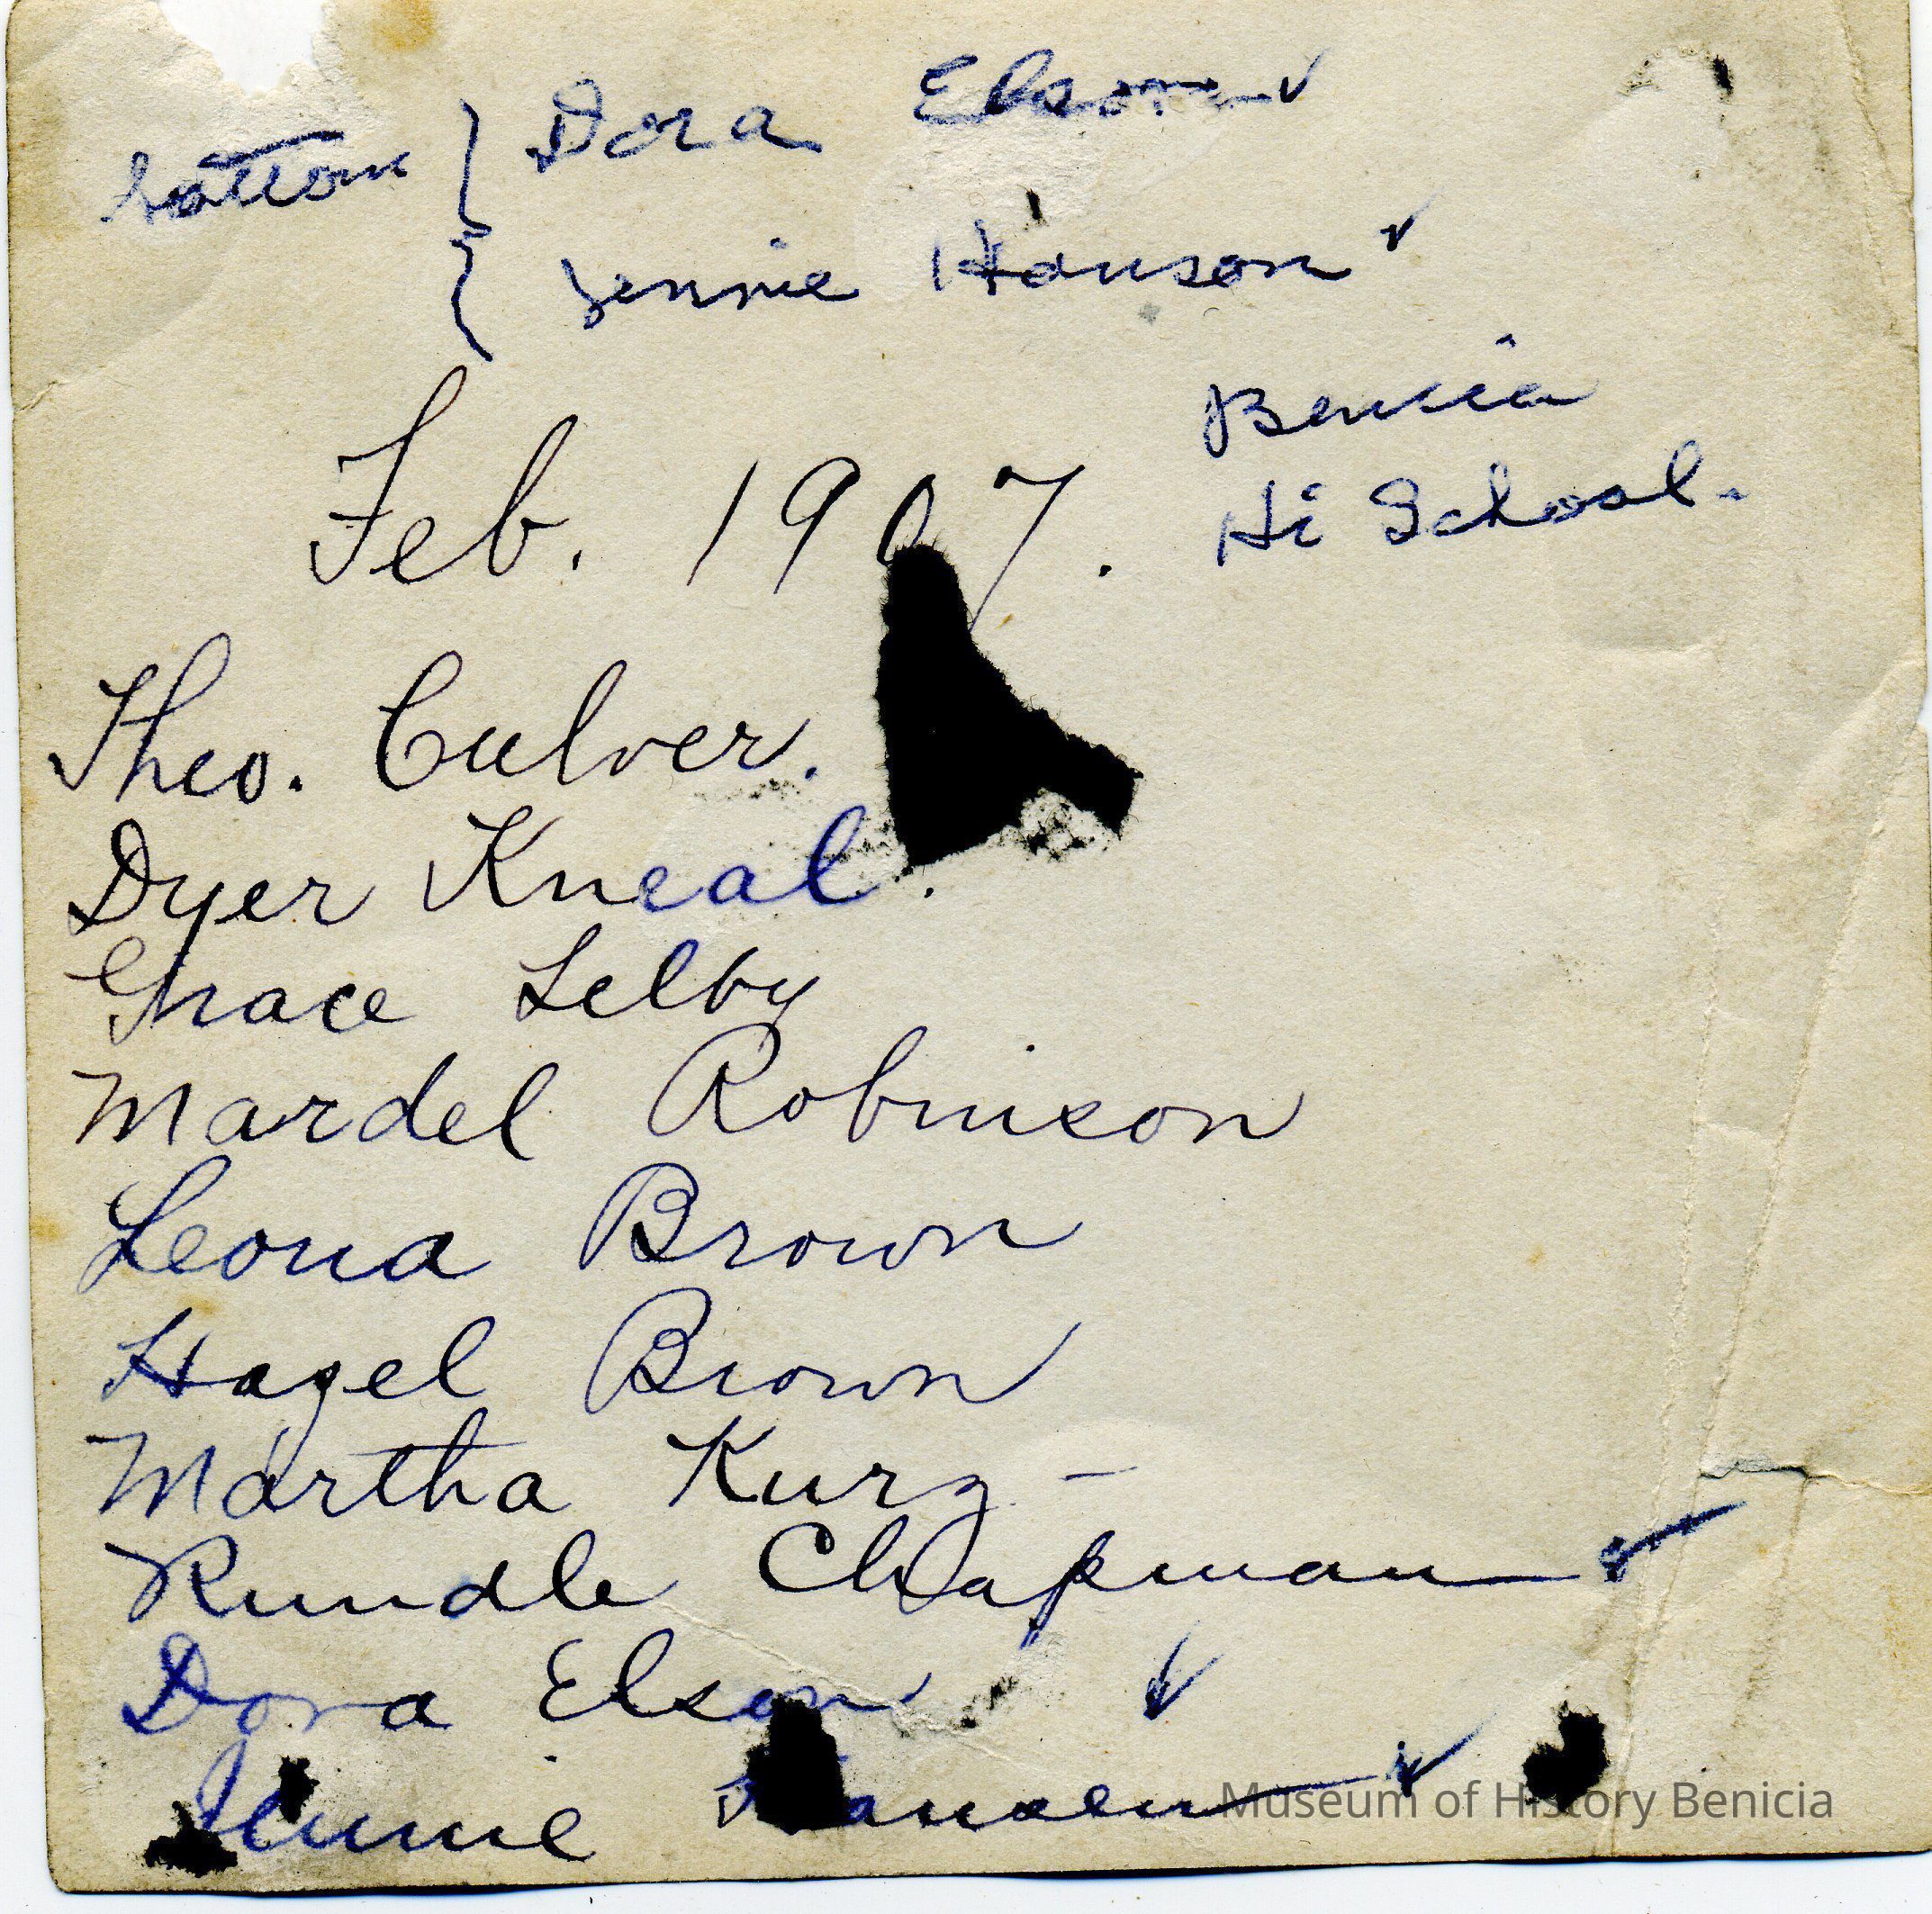 bottom } Dora Elson ✓
{ Jennie Hanson ✓
Feb. 1907.
Benicia
Hi School.
Theo. Culver.
Dyer Kneal.
Grace Selby
Mardel Robinson
Leona Brown
Hazel Brown
Martha Kurz -
Rundle Chapman ✓
Dora Elson ✓
Jennie Hansen ✓
Museum of History Benicia